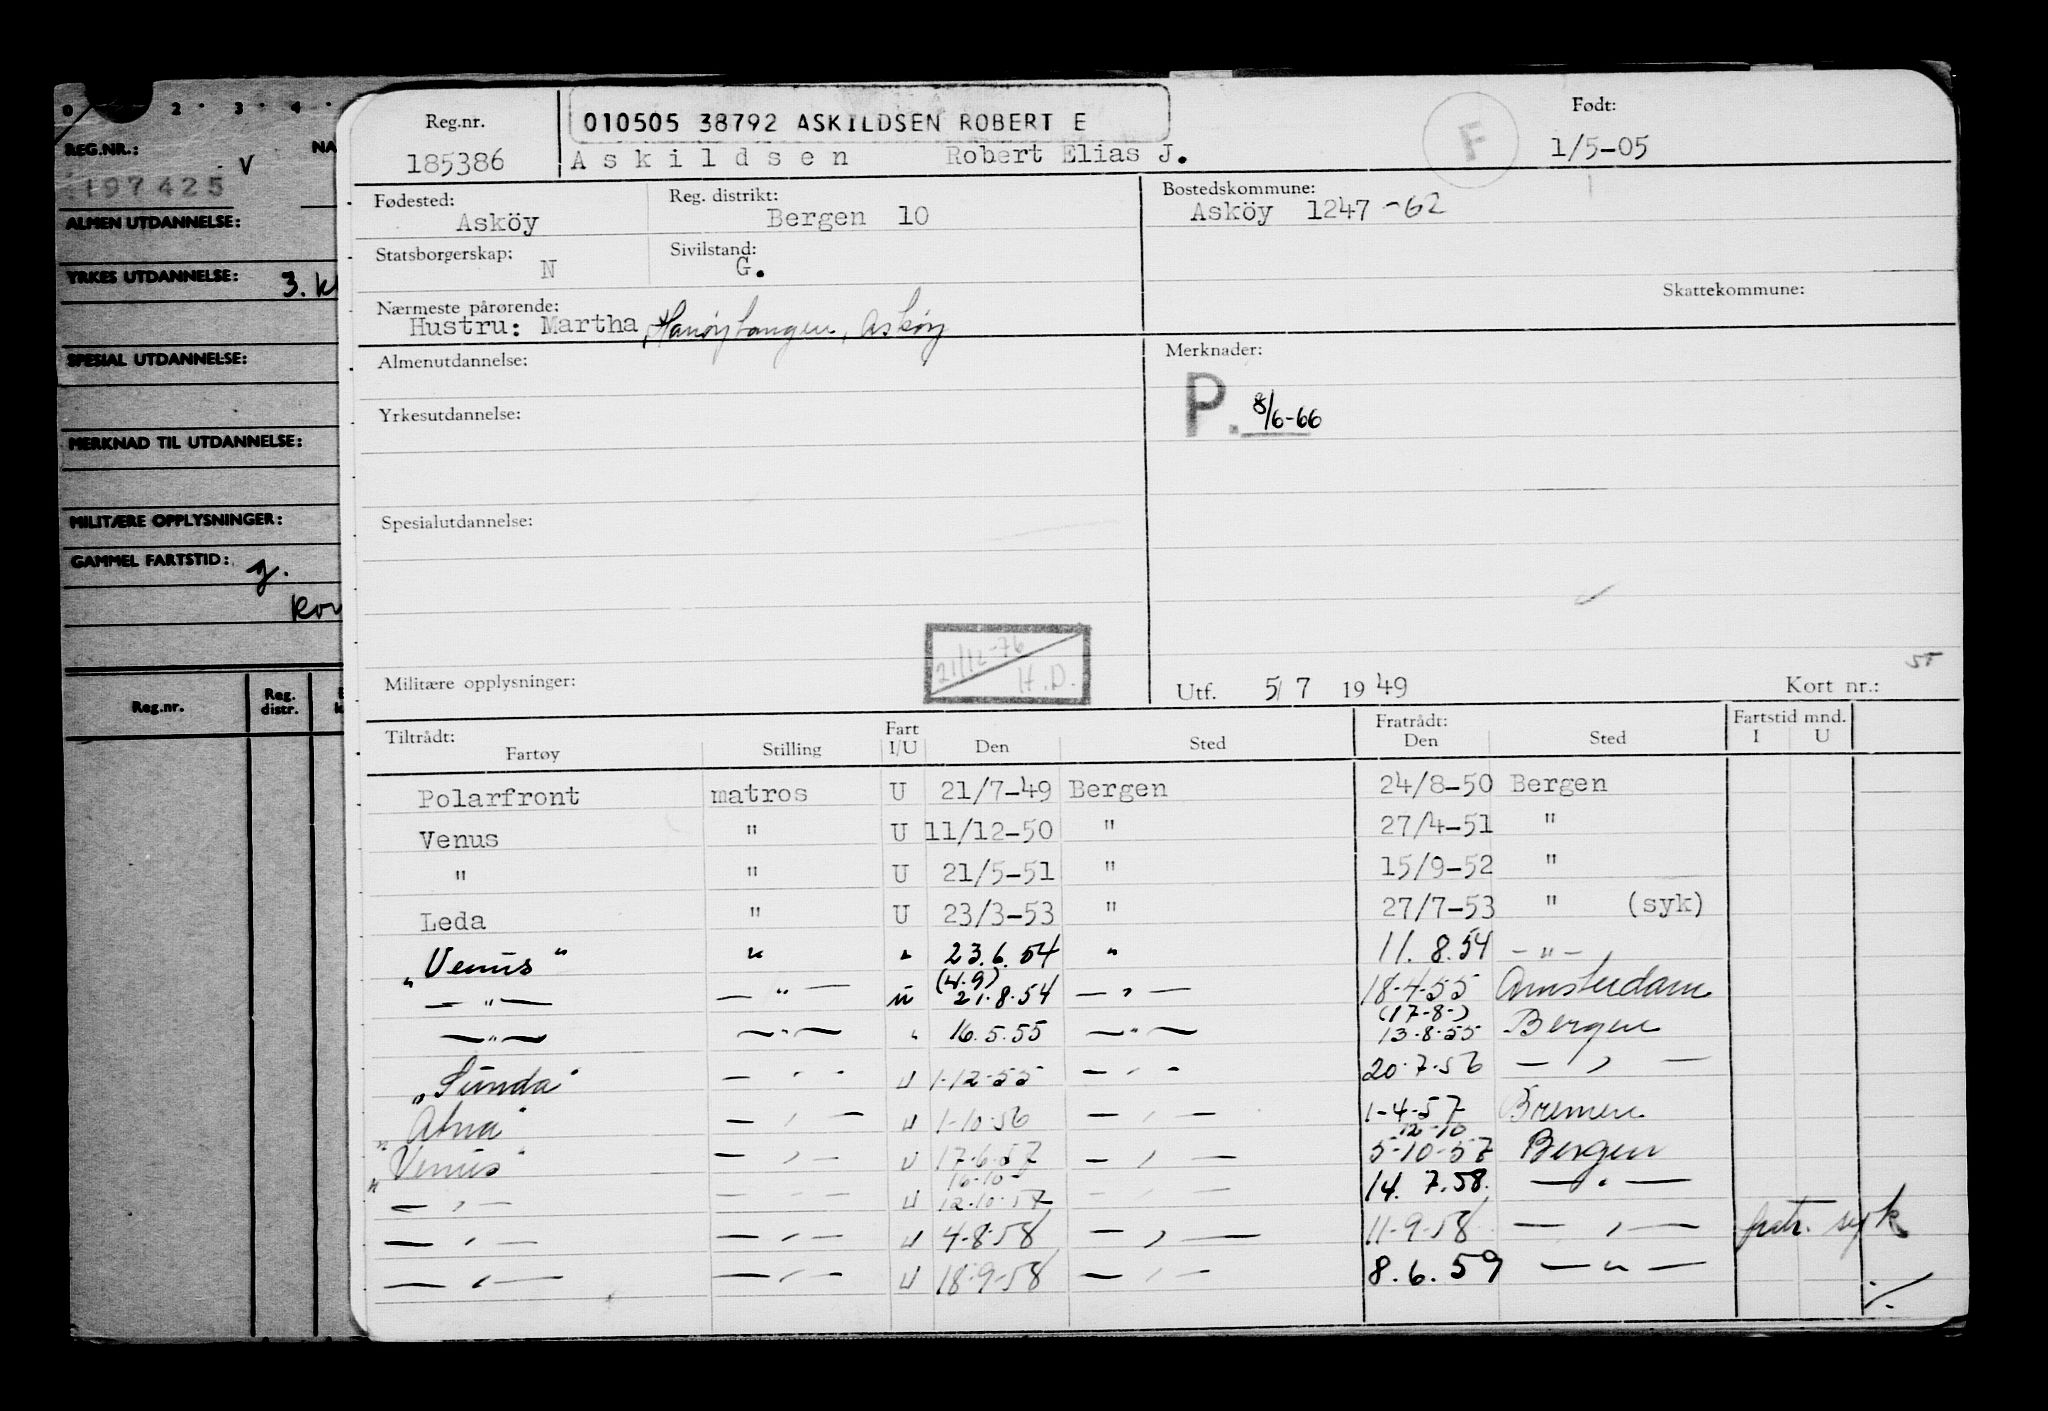 0 2 · 3 · 4 ·
REG.NR.: V NA
197425
ALMEN UTDANNELSE:
YRKES UTDANNELSE: 3. kl
SPESIAL UTDANNELSE:
MERKNAD TIL UTDANNELSE:
MILITÆRE OPPLYSNINGER:
GAMMEL FARTSTID: g.
kov
Reg.nr. Reg. distr.
Reg.nr. 010505 38792 ASKILDSEN ROBERT E F Født:
185386 Askildsen Robert Elias J. 1/5-05
Fødested: Reg. distrikt: Bostedskommune:
Asköy Bergen 10 Asköy 1247 -62
Statsborgerskap: N Sivilstand: G.
Skattekommune:
Nærmeste pårørende:
Hustru: Martha, Hanøytangen, Askøy
Almenutdannelse: Merknader:
P. 8/6-66
Yrkesutdannelse:
Spesialutdannelse:
21/12-76 H.D.
Militære opplysninger: Utf. 5/7 1949 Kort nr.:
Tiltrådt: Fart Fratrådt: Fartstid mnd.
Fartøy Stilling I/U Den Sted Den Sted I U
Polarfront matros U 21/7-49 Bergen 24/8-50 Bergen
Venus " U 11/12-50 " 27/4-51 "
" " U 21/5-51 " 15/9-52 "
Leda " U 23/3-53 " 27/7-53 " (syk)
„Venus" " " 23.6.54 " 11.8.54 -"-
(4.9) 
-"- -"- u 21.8.54 -"- 18-4-55 Amsterdam
(17-8-)
-"- -"- " 16.5.55 -"- 13-8-55 Bergen
„Sunda" -"- U 1-12-55 -"- 20-7-56 -"-
„Atna" -"- U 1-10-56 -"- 1-4-57 Bremen
12-10
„Venus" -"- U 17-6-57 -"- 5-10-57 Bergen
16-10-
-"- -"- U 12-10-57 -"- 14.7.58. -"-
-"- -"- U 4-8-58 -"- 11-9-58 -"- fratr. syk
-"- -"- U 18-9-58 -"- 8.6.59 -"-